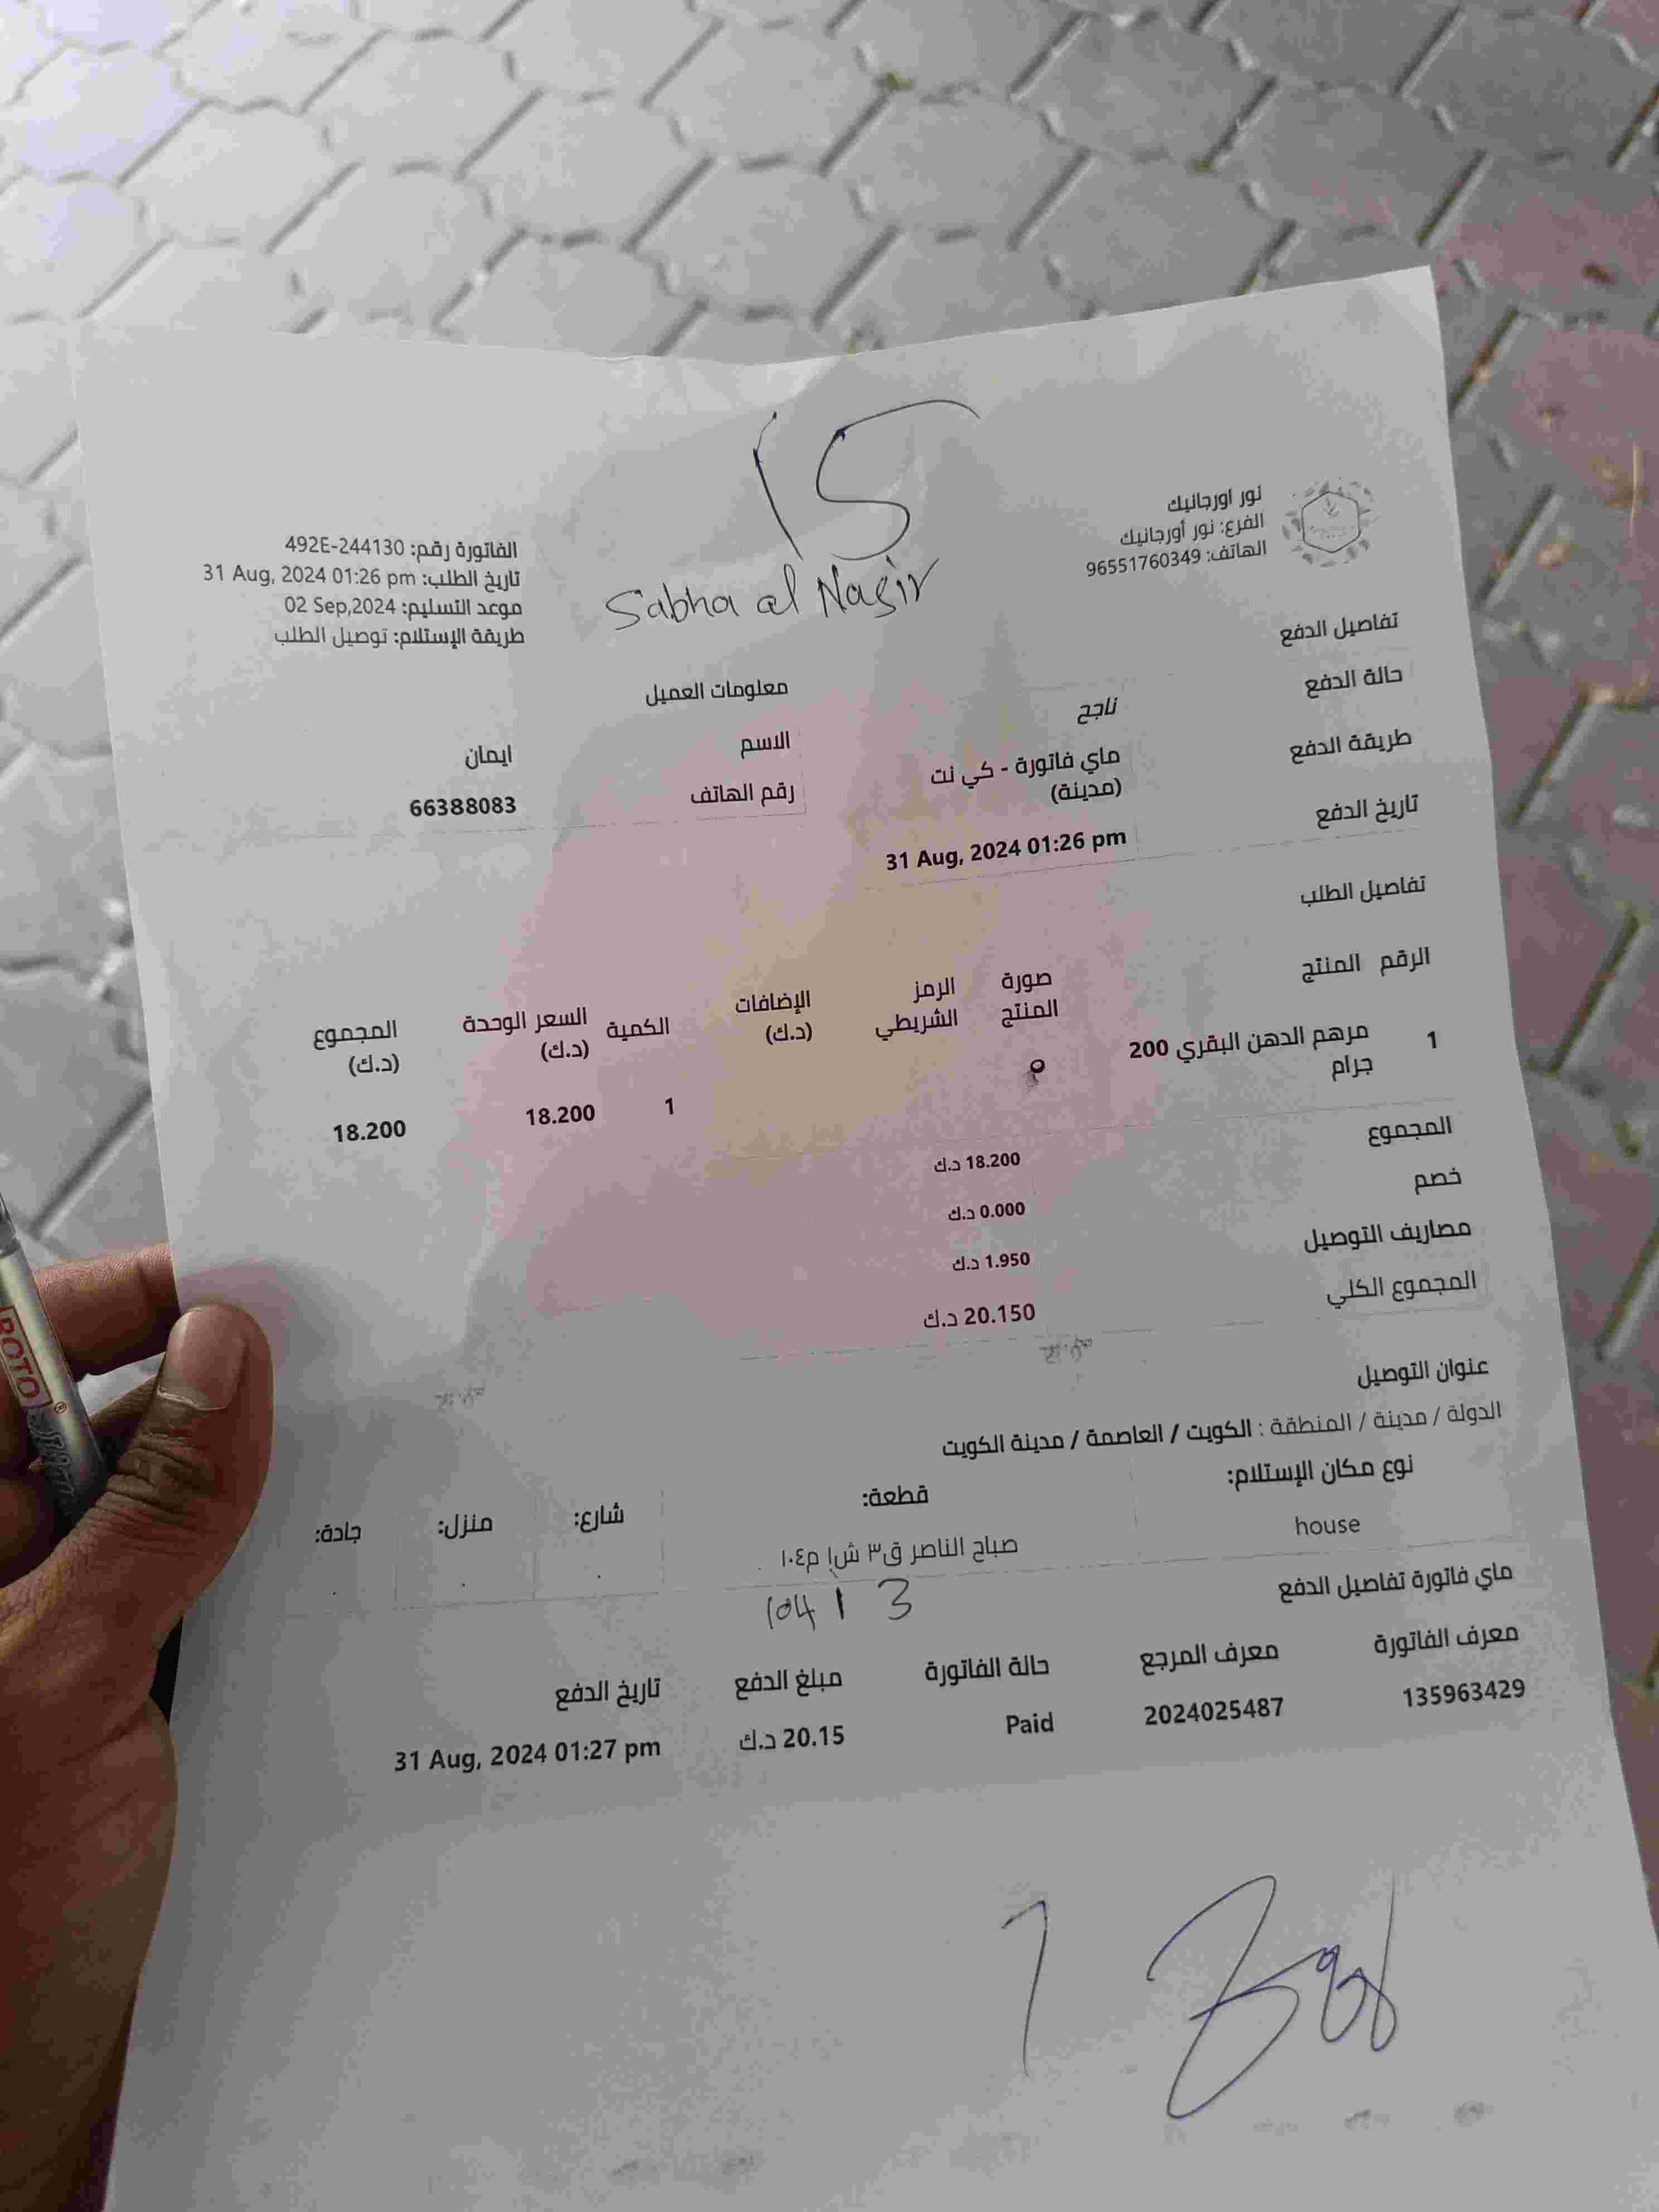 15
Sabha al Nasir
نور اورجانيك
الفرع: نور أورجانيك
الهاتف: 96551760349
الفاتورة رقم: 492E-244130
تاريخ الطلب: 31 Aug, 2024 01:26 pm
موعد التسليم: 02 Sep,2024
طريقة الإستلام: توصيل الطلب
تفاصيل الدفع
حالة الدفع ناجح
طريقة الدفع ماي فاتورة - كي نت
(مدينة)
تاريخ الدفع 31 Aug, 2024 01:26 pm
معلومات العميل
الاسم ايمان
رقم الهاتف 66388083
تفاصيل الطلب
الرقم المنتج صورة المنتج الرمز الشريطي الإضافات (د.ك) الكمية السعر الوحدة (د.ك) المجموع (د.ك)
1 مرهم الدهن البقري 200 جرام 1 18.200 18.200
المجموع 18.200 د.ك
خصم 0.000 د.ك
مصاريف التوصيل 1.950 د.ك
المجموع الكلي 20.150 د.ك
عنوان التوصيل
الدولة / مدينة / المنطقة : الكويت / العاصمة / مدينة الكويت
نوع مكان الإستلام: قطعة: شارع: منزل: جادة:
house صباح الناصر ق٣ ش١ م١٠٤ . . . .
104 1 3
ماي فاتورة تفاصيل الدفع
معرف الفاتورة معرف المرجع حالة الفاتورة مبلغ الدفع تاريخ الدفع
135963429 2024025487 Paid 20.15 د.ك 31 Aug, 2024 01:27 pm
ROTO